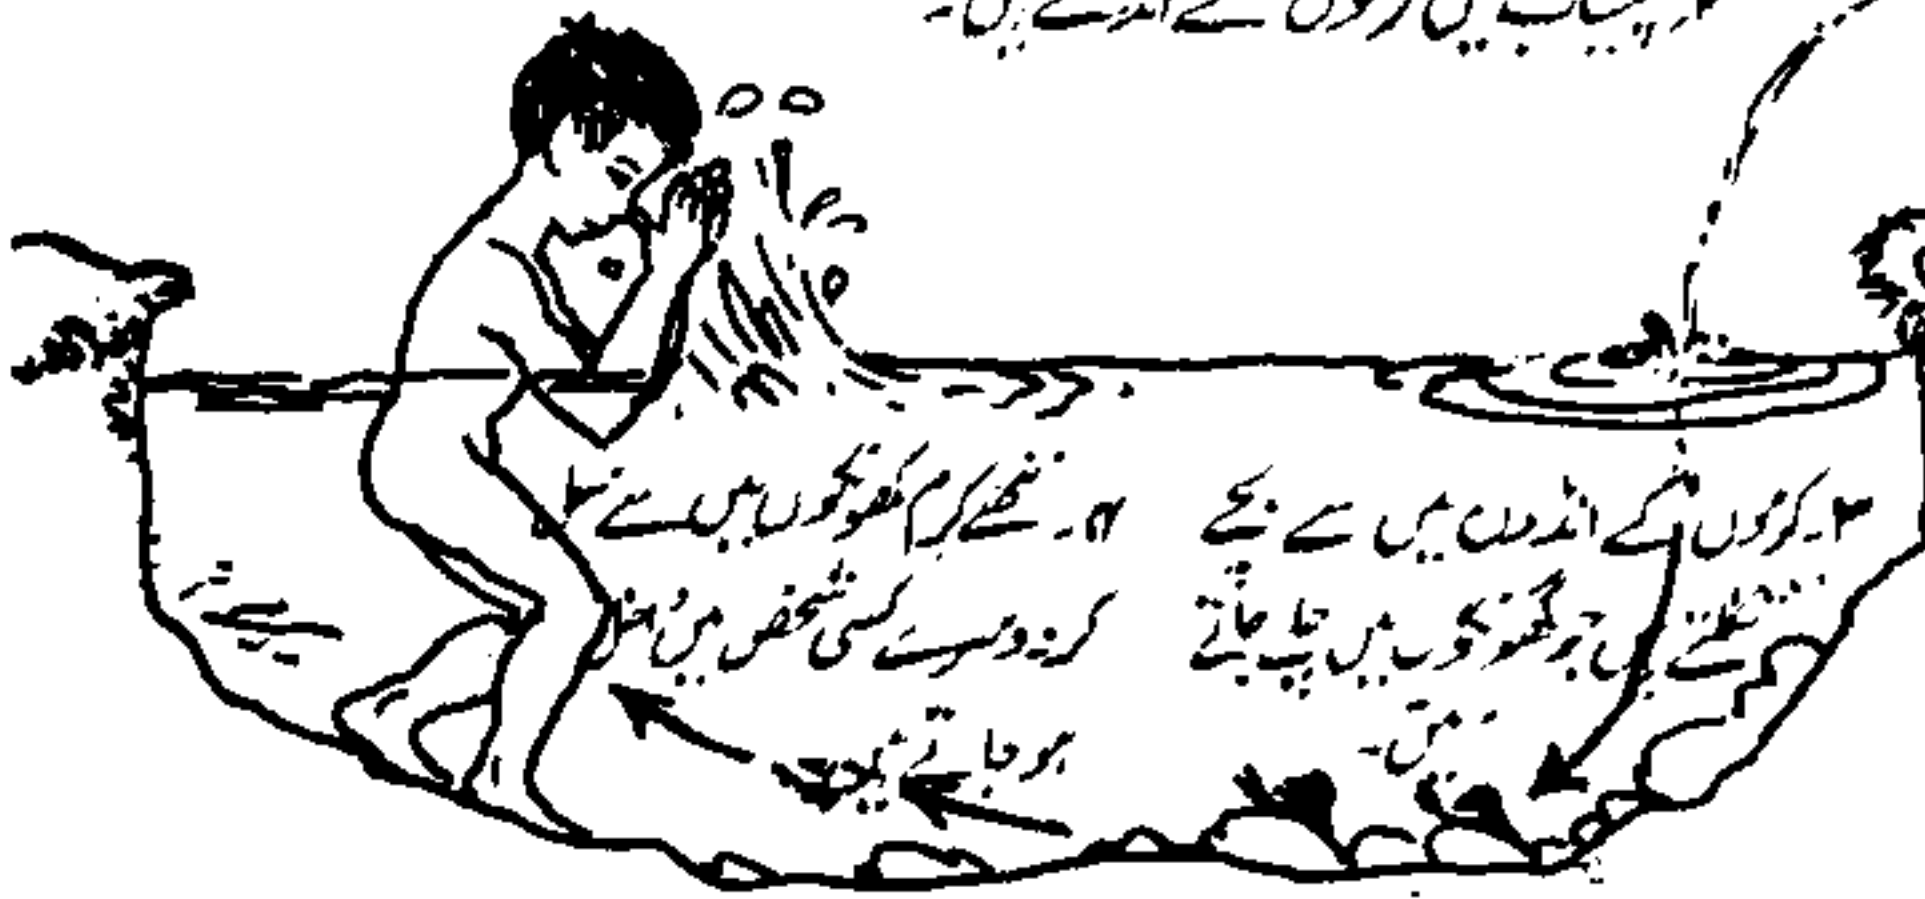 پیشاب میں کرموں کے انڈے ہیں۔
۳۔ کرموں کے انڈوں میں سے بچے
نکلتے ہیں جو گھونگوں میں چلے جاتے
ہیں۔
۴۔ ننھے کرم گھونگوں میں سے نکل
کر دوسرے کسی شخص میں داخل
ہو جاتے ہیں۔